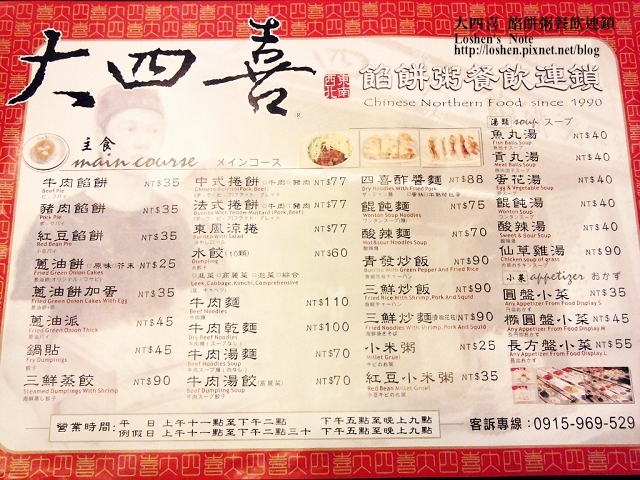 大四喜 餡餅粥餐飲連鎖
Loshen's Note
http://loshen.pixnet.net/blog
大四喜
東南西北
餡餅粥餐飲連鎖
Chinese Northern Food since 1990
主食
main course メインコース
牛肉餡餅 NT$35
Beef Pie
豬肉餡餅 NT$35
Pork Pie
紅豆餡餅 NT$30
Red Bean Pie
蔥油餅 原味 芥末 NT$25
Fried Green Onion Cakes
蔥油餅加蛋 NT$35
Fried Green Onion Cakes With Egg
蔥油派 NT$45
Fried Green Onion Thick
鍋貼 NT$45
Fry Dumplings
三鮮蒸餃 NT$90
Steamed Dumplings With Shrimp
中式捲餅 牛肉 豬肉 NT$77
法式捲餅 牛肉 豬肉 NT$77
Burrito With Yellow Mustard (Pork,Beef)
東風涼捲 NT$77
Burrito With Salad
水餃(10顆) NT$60
Dumpling
韭菜 高麗菜 泡菜 綜合
Leek,Cabbage,Kimchi,Comprehensive
牛肉麵 NT$110
Beef Noodles
牛肉乾麵 NT$100
Dry Beef Noodles
牛肉湯麵 NT$70
Beef Noodles Soup
牛肉湯餃(高麗菜) NT$70
Beef Dumplings Soup
四喜酢醬麵 NT$88
Dry Noodles With Fried Pork
餛飩麵 NT$75
Wonton Soup Noodles
酸辣麵 NT$70
Hot&Sour Noodles Soup
青發炒飯 NT$90
Burrito With Green Pepper And Fried Rice
三鮮炒飯 NT$90
Fried Rice With Shrimp,Pork And Squid
三鮮炒麵 NT$90
Fried Noodles With Shrimp,Pork And Squid
小米粥 NT$25
Millet Gruel
紅豆小米粥 NT$35
Red Bean Millet Gruel
湯類 soup スープ
魚丸湯 NT$40
Fish Balls Soup
貢丸湯 NT$40
Meat Balls Soup
蛋花湯 NT$40
Egg & Vegetable Soup
餛飩湯 NT$40
Wonton Soup
酸辣湯 NT$40
Sweet & Sour Soup
仙草雞湯 NT$90
Chicken soup of grass
小菜 appetizer おかず
圓盤小菜 NT$35
Any Appetizer From Display S
橢圓盤小菜 NT$45
Any Appetizer From Display M
長方盤小菜 NT$55
Any Appetizer From Display L
營業時間:平 日 上午十一點至下午二點 下午五點至晚上九點
例假日 上午十一點至下午二點三十 下午五點至晚上九點
客訴專線:0915-969-529